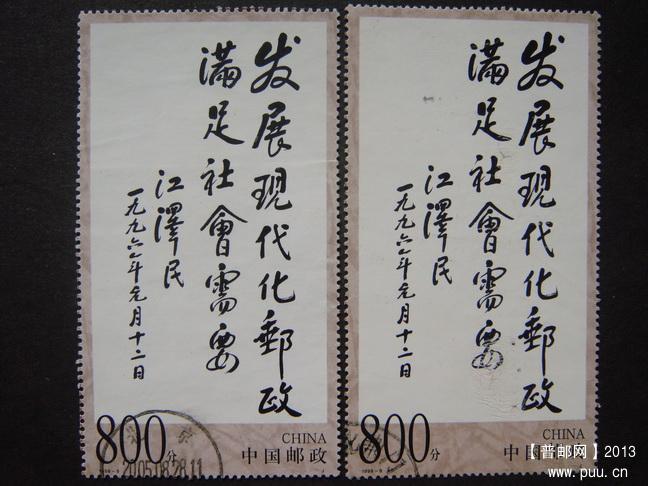 发展现代化郵政
滿足社會需要
江澤民
一九九六年元月十二日
800分
CHINA
中国邮政
1998-5
2005.08.28.11
发展现代化郵政
滿足社會需要
江澤民
一九九六年元月十二日
800分
CHINA
中国邮政
1998-5
【普邮网】2013
www.puu.cn